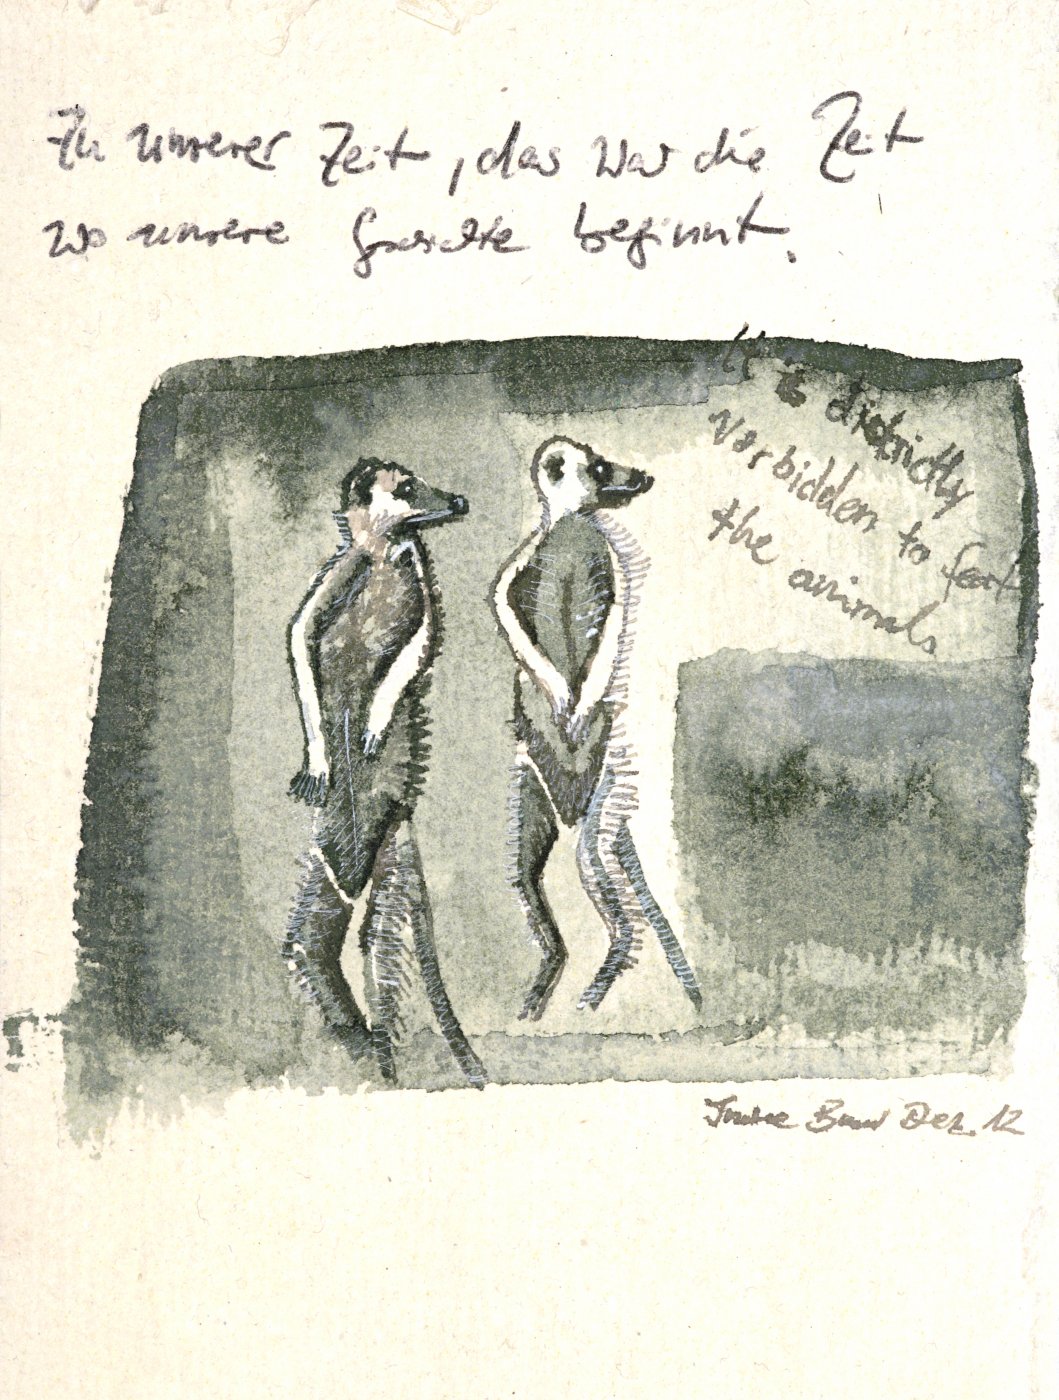 Zu unserer Zeit, das war die Zeit
wo unsere Geschichte beginnt.
It is districtly
Verbidden to
the animals
Dez. 12